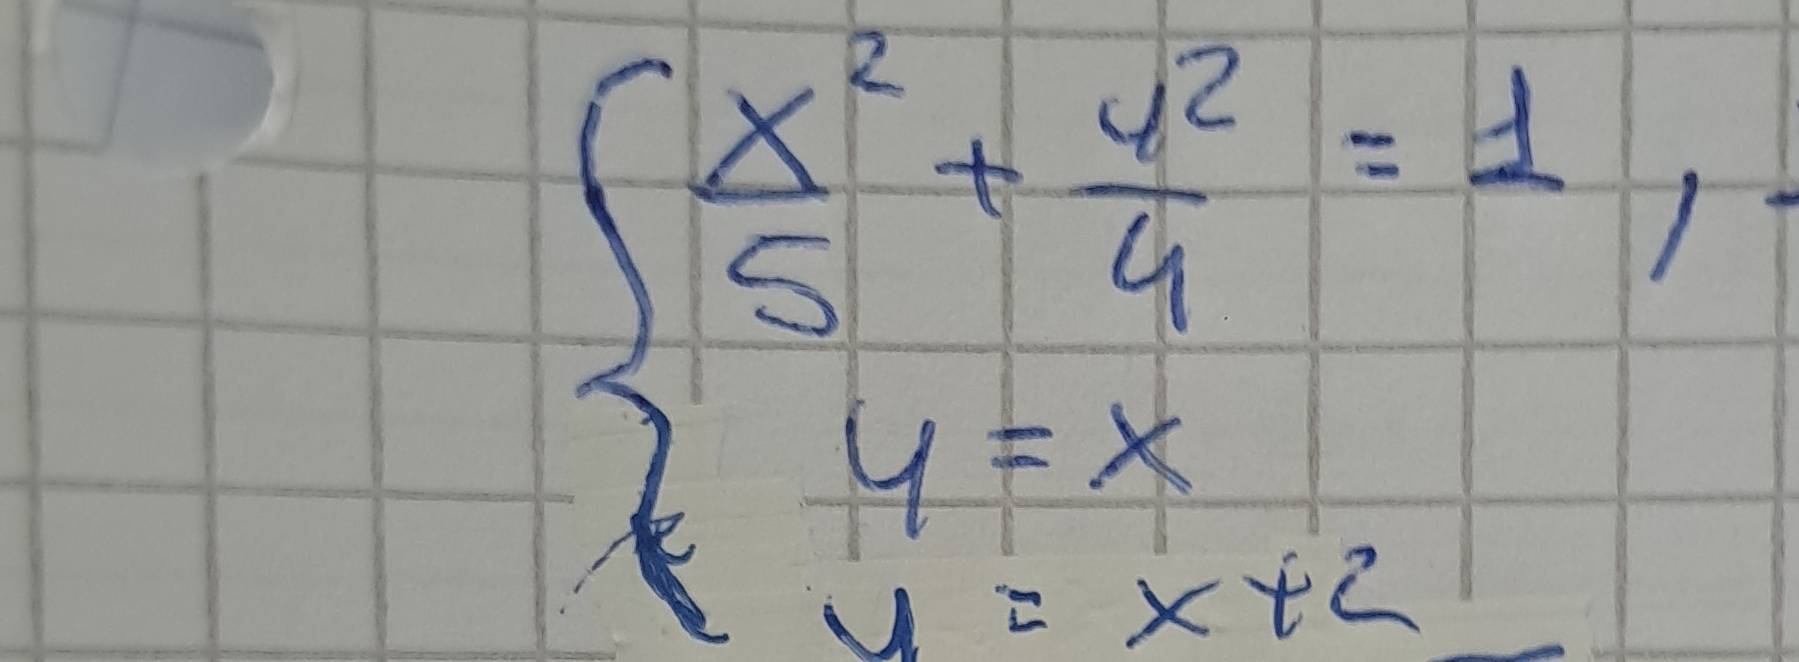 { x²/5 + y²/4 = 1,
y = x
y = x+2